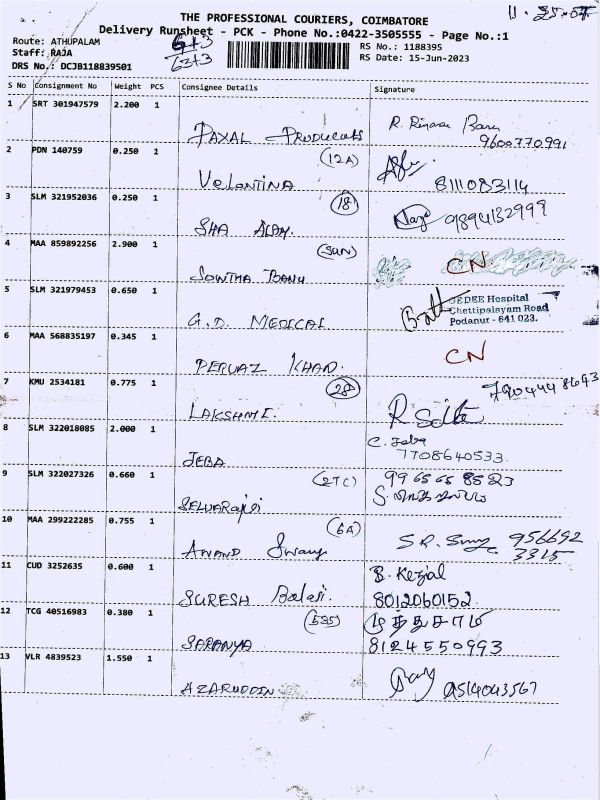 11-25-07
THE PROFESSIONAL COURIERS, COIMBATORE
Delivery Runsheet - PCK - Phone No.:0422-3505555 - Page No.:1
Route: ATHUPALAM 6+3 RS No.: 1188395
Staff: RAJA 63+3 RS Date: 15-Jun-2023
DRS No.: DCJB118839501
S No Consignment No Weight PCS Consignee Details Signature
1 SRT 301947579 2.200 1 PAXAL PRODUCATS R. Banu 9600770991
2 PDN 140759 0.250 1 (12A) VELANTINA 8111083114
3 SLM 321952036 0.250 1 (18) SHA ALAM. 9894132999
4 MAA 859892256 2.900 1 (SUN) SOWTHA BANU CN
5 SLM 321979453 0.650 1 G.D. MEDICAL
JEDEE Hospital
Chettipalayam Road
Podanur - 641 023.
6 MAA 568835197 0.345 1 PERVAZ KHAN. CN
7 KMU 2534181 0.775 1 (28) LAKSHMI. 7904448643
8 SLM 322018085 2.000 1 JEBA C. Jeba 7708640533.
9 SLM 322027326 0.660 1 (27C) SELVARAJ 9965658523
10 MAA 299222285 0.755 1 (6A) ANAND Swamy S.R. Swamy 956692 3315
11 CUD 3252635 0.600 1 SURESH Balaji. 8012060152
12 TCG 40516983 0.380 1 (535) SARANYA 8124550993
13 VLR 4839523 1.550 1 AZARUDDIN 9514043567